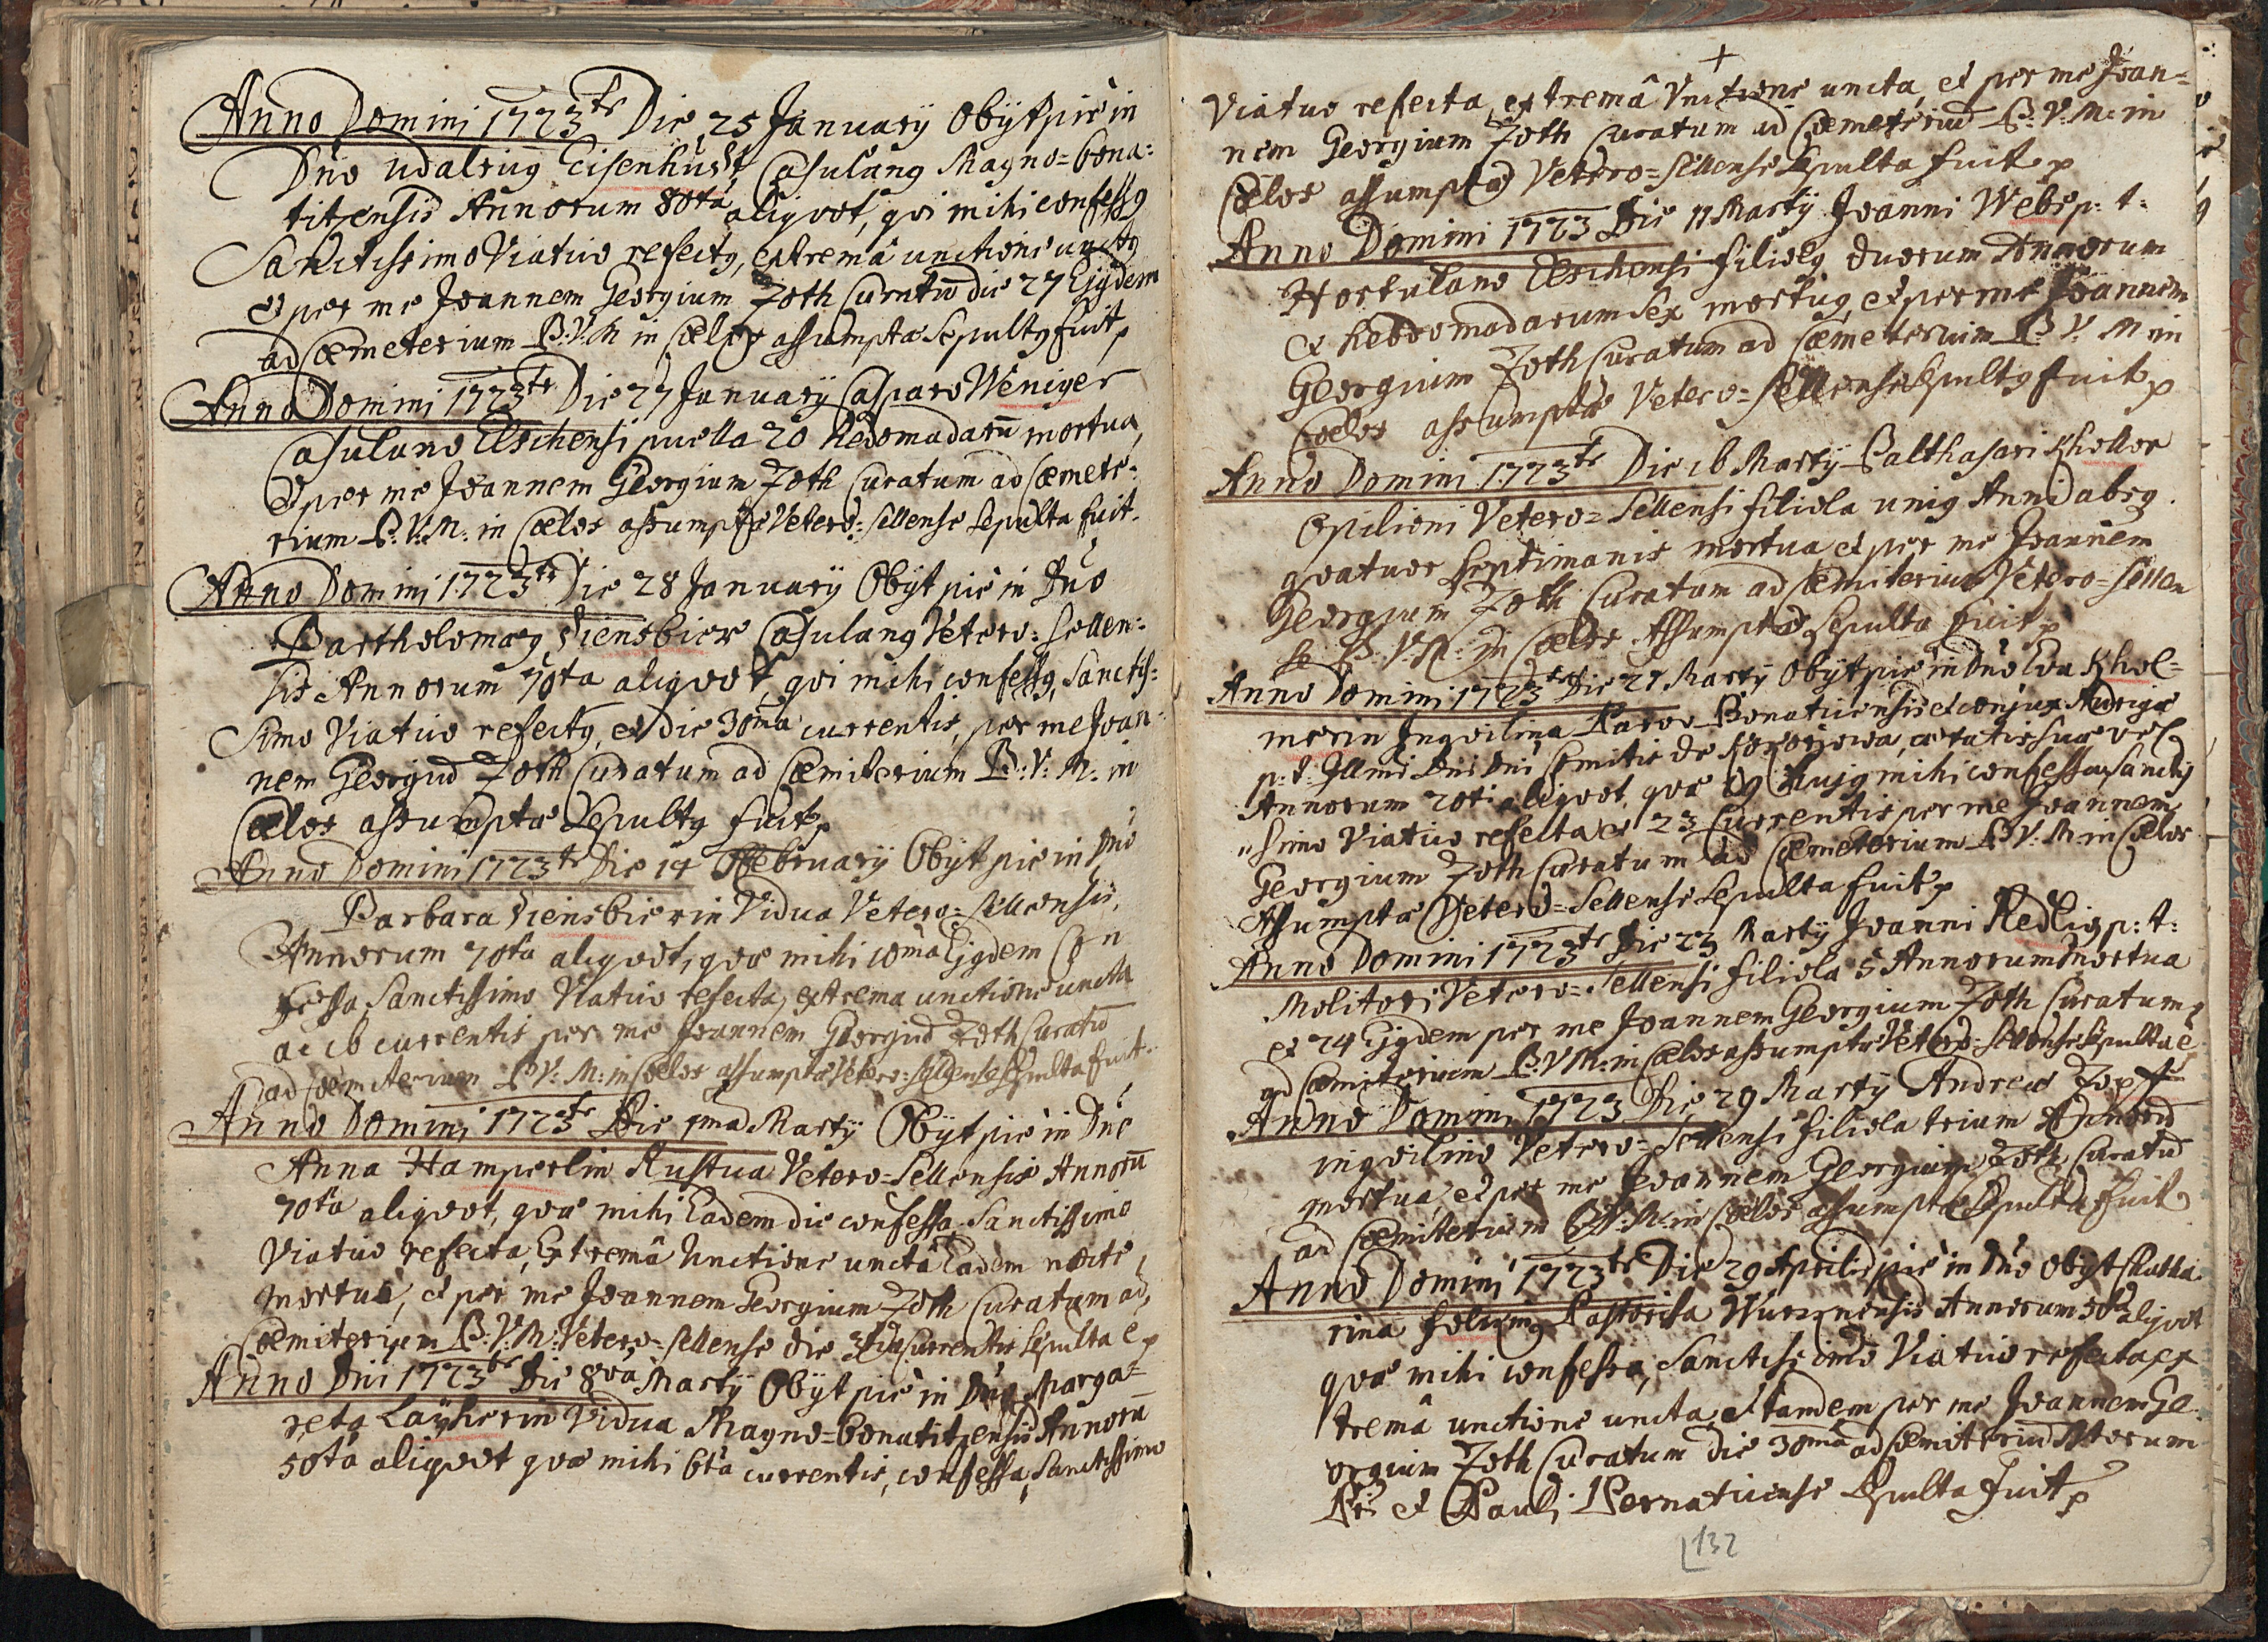 Anno Domini 1723tr Die 25 January Obÿt pie in
Dño Udalricg Eisenhudt, Casulang Magno=bona:
titzensis Annorum 80ta aliqvot, qvi mihi confessg
Sanctissimo Viatico refectg, extremâ unctione unctg
et per me Joannem Georgium Zoth Curatũ die 27 Ejgdem
ad Cœmeterium B:V:M in Cœlos assumptæ Sepultg fuit
Anno Domini 1723tr Die 27 January Casparo Weniger
Casulano Elschensi puella 20 hebdomadarũ mortua,
et per me Joannem Georgium Zoth Curatum ad Cœmete:
rium B:V:M: in Cœlos assumptæ Vetero=Sellense sepulta fuit.
Anno Domini 1723tr Die 28 January Obÿt pie in Dño
Bartholomæg Diensbier Casulang Vetero=Sellen:
sis Annorum 70ta aliqvot, qvi mihi confessg, Sanctis:
simo Viatico refectg, et die 30ma currentis, per me Joan:
nem Georgiũ Zoth Curatum ad Cœmiterium B:V:M: in
Cœlos assumptæ Sepultg fuit
Anno Domini 1723tr Die 14 February Obÿt pie in Dño
Barbara Diensbierin Vidua Vetero=Sellensis,
Annorum 70ta aliqvot, qvæ mihi 10ma Ejgdem Con
fessa, Sanctissimo Viatico refecta, extrema unctione uncta
ac 16 currentis per me Joannem Georgiũ Zoth Curatũ
ad Cœmiterium B:V:M: in Cœlos assumptæ Vetero=Sellense Sepulta fuit.
Anno Domini 1723tr Die 1ma Martÿ Obÿt pie in Dño
Anna Hamperlin Rustica Vetero=Sellensis Annorũ
70ta aliqvot, qvæ mihi Eadem die confessa Sanctissimo
Viatico refecta, Extremâ Unctione uncta Eadem nocte,
mortua, et per me Joannem Georgium Zoth Curatum ad,
Cœmiterium B:V:M: Vetero=Sellense die 3tia currentis Sepulta e
Anno Dñi 1723tr Die 8va Martÿ Obÿt pie in Dño Marga=
reta Laÿherin Vidua Magno=bonatitzensis Annorũ
50ta aliqvot qvæ mihi 6ta currentis, confessa, Sanctissimo
+
Viatico refecta, extremâ Unctione uncta, et per me Joan=
nem Georgium Zoth Curatum ad Cœmeteriũ B:V:M: in
Cœlos assumptæ Vetero=Sellense Sepulta fuit
Anno Domini 1723 Die 11 Martÿ Joanni Webe p:t:
Hortulano Elschensi filiolg duorum Annorum
et hebdomadarum sex mortug, et per me Joannem
Georgium Zoth Curatum ad Cœmeterium B:V:M in
Cœlos assumptæ Vetero=Sellense Sepultg fuit
Anno Domini 1723tr Die 16 Martÿ Balthasari Kholler
Opilioni Vetero=Sellensi filiola unig Anni absq
qvatuor septimanis mortua et per me Joannem
Georgium Zoth Curatum ad Cœmiterium Vetero=Sellen
se B:V:M: in Cœlos Assumptæ Sepulta fuit
Anno Domini 1723tr Die 21 Martÿ Obÿt pie in Dño Eva Khol=
merin Inqvilina Parvo Bonaticensis et conjux Aurigæ
p:t: Illmi Dni Dni Comitis de , ætatis suæ vel
Annorum 20ti aliqvot, qvæ 19 hujg mihi confessa Sanctis
simo Viatico refecta et 23 Currentis per me Joannem
Georgium Zoth Curatum ad Cœmeterium B:V:M: in Cœlos
Assumptæ Vetero=Sellense Sepulta fuit
Anno Domini 1723tr Die 23 Martÿ Joanni Redlig p:t:
Molitori Vetero=Sellensi filiola 5 Annorum mortua
et 24 Ejgdem per me Joannem Georgium Zoth Curatum
ad Cœmiterium B:V:M: in Cœlos assumptæ Vetero=Sellense Sepulta ẽ
Anno Domini 1723 Die 29 Martÿ Andreæ Zopf
inqvilino Vetero=Sellensi filiola trium Annorũ
mortua, et per me Joannem Georgium Zoth Curatũ
ad Cœmiterium B:V:M: in Cœlos assumptæ Sepulta fuit
Anno Domini 1723tr Die 29 Aprilis pie in Dño Obÿt Catha
rina Pastorisa Annorum 50ta aliqvot
qvæ mihi confessa, Sanctissimo Viatico refecta, ex
tremâ unctione uncta, et tandem per me Joannem Ge
orgium Zoth Curatum die 30ma ad Cœmiteriũ Storum
Pri et Pauli Pernaticense Sepulta fuit
132